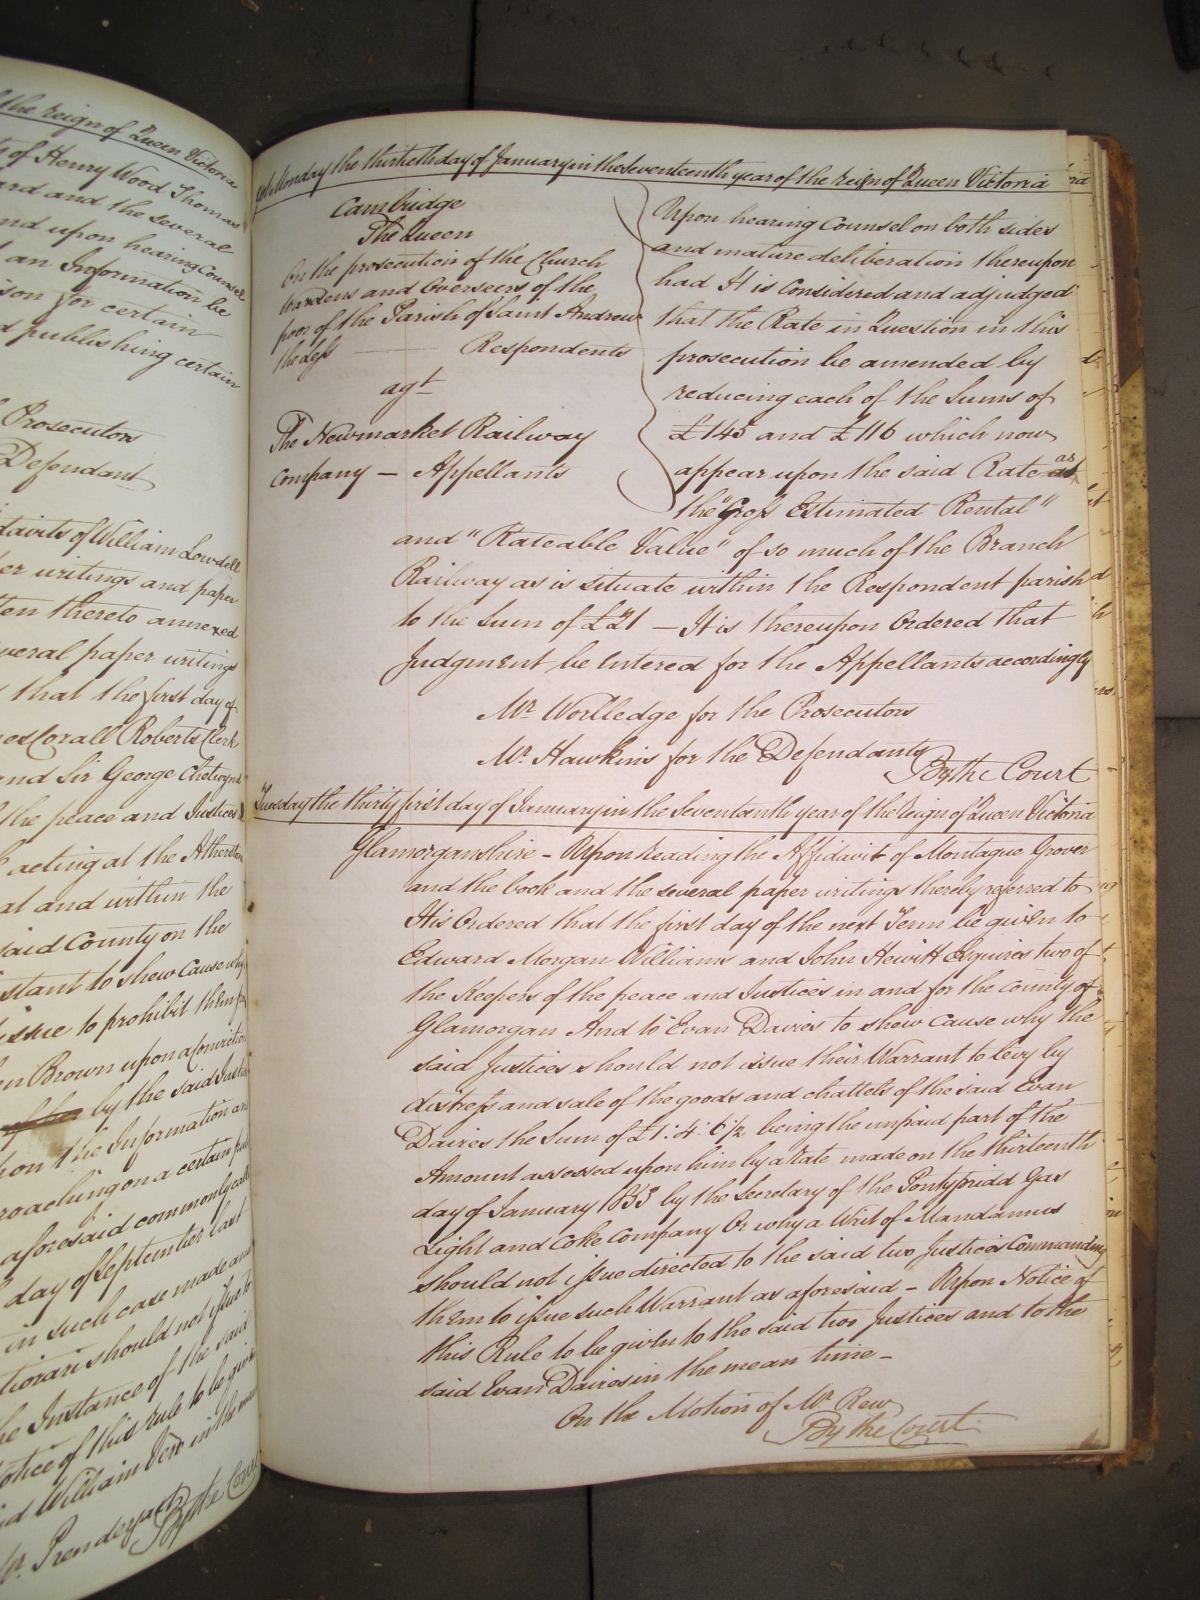 the reign of Queen Victoria
of Henry Wood Thomas
and the several
nd upon hearing Counsel
an Information be
for certain
publishing certain
Prosecutors
Defendant
davits of William Lowdell
er writings and paper
thereto annexed
veral paper writings
that the first day of
Corall Roberts Clerk
and Sir George Chetwynd
the peace and Justices
acting at the
at and within the
said County on the
stant to shew Cause why
issue to prohibit them
Brown upon a Conviction
by the said Justices
the Information
on a certain
aforesaid commonly
day of September last
in such case made and
tiorari should not issue to
he Instance of the said
otice of this rule to be given
William in the mean
Mr. Prendergast
By the Court
Monday the thirtieth day of January in the Seventeenth year of the Reign of Queen Victoria
Cambridge
The Queen
On the prosecution of the Church
wardens and Overseers of the
poor of the Parish of Saint Andrew
the Less — Respondents
agt
The Newmarket Railway
Company — Appellants
Upon hearing Counsel on both sides
and mature deliberation thereupon
had It is Considered and adjudged
that the Rate in Question in this
prosecution be amended by
reducing each of the Sums of
£145 and £116 which now
appear upon the said Rate as
the "Gross Estimated Rental"
and "Rateable Value" of so much of the Branch
Railway as is situate within the Respondent parish
to the Sum of £21 — It is thereupon Ordered that
Judgment be Entered for the Appellants accordingly
Mr. Worlledge for the Prosecutors
Mr. Hawkins for the Defendants
By the Court
Tuesday the thirty first day of January in the Seventeenth year of the Reign of Queen Victoria
Glamorganshire – Upon Reading the Affidavit of Montague Grover
and the book and the several paper writings thereby referred to
It is Ordered that the first day of the next Term be given to
Edward Morgan Williams and John Hewitt Esquires two of
the Keepers of the peace and Justices in and for the County of
Glamorgan And to Evan Davies to shew Cause why the
said Justices should not issue their Warrant to levy by
distress and sale of the goods and chattels of the said Evan
Davies the Sum of £1:4:6½ being the unpaid part of the
Amount assessed upon him by a Rate made on the thirteenth
day of January 1853 by the Secretary of the Pontypridd Gas
Light and Coke Company Or why a Writ of Mandamus
should not issue directed to the said two Justices Commanding
them to issue such Warrant as aforesaid – Upon Notice of
this Rule to be given to the said two Justices and to the
said Evan Davies in the mean time –
On the Motion of Mr. Rew
By the Court